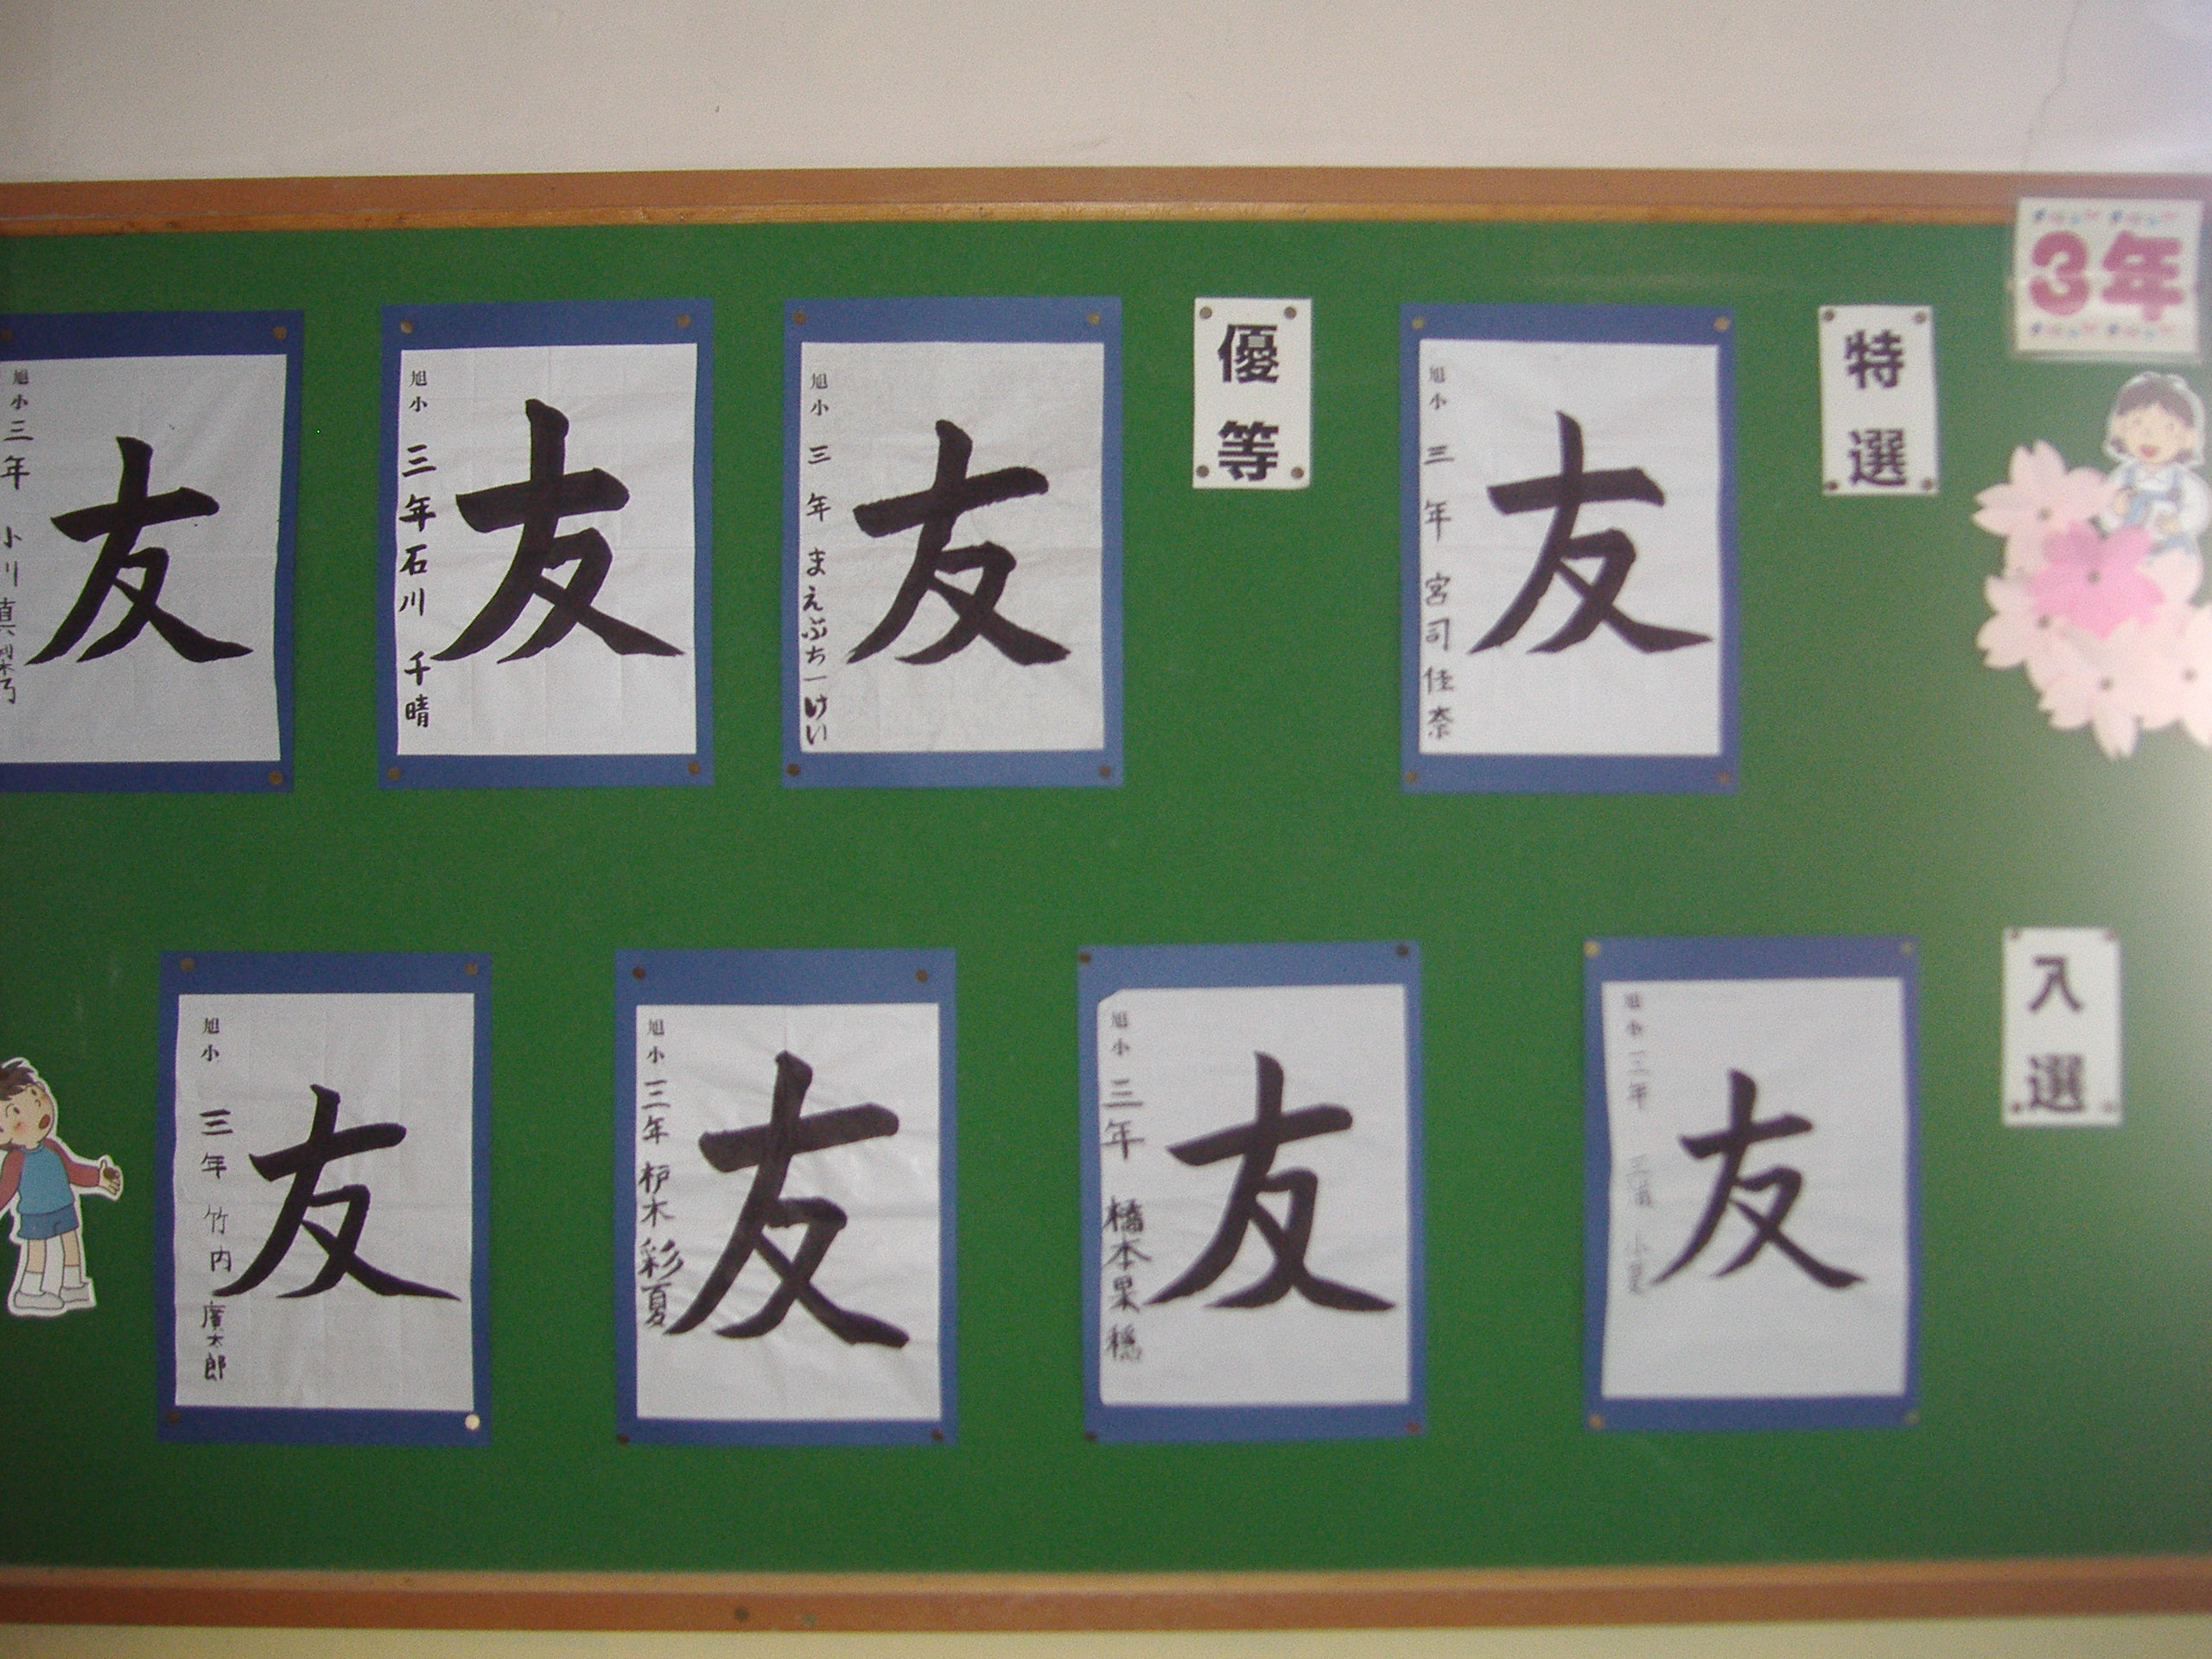 3年
特選
友
旭小 三年 宮司佳奈
優等
友
旭小 三年 まえぶち一けい
友
旭小 三年 石川 千晴
友
旭小 三年 小川 真
入選
友
旭小 三年 小
友
旭小 三年 橋本果穏
友
旭小 三年 枦木彩夏
友
旭小 三年 竹内 廣太郎